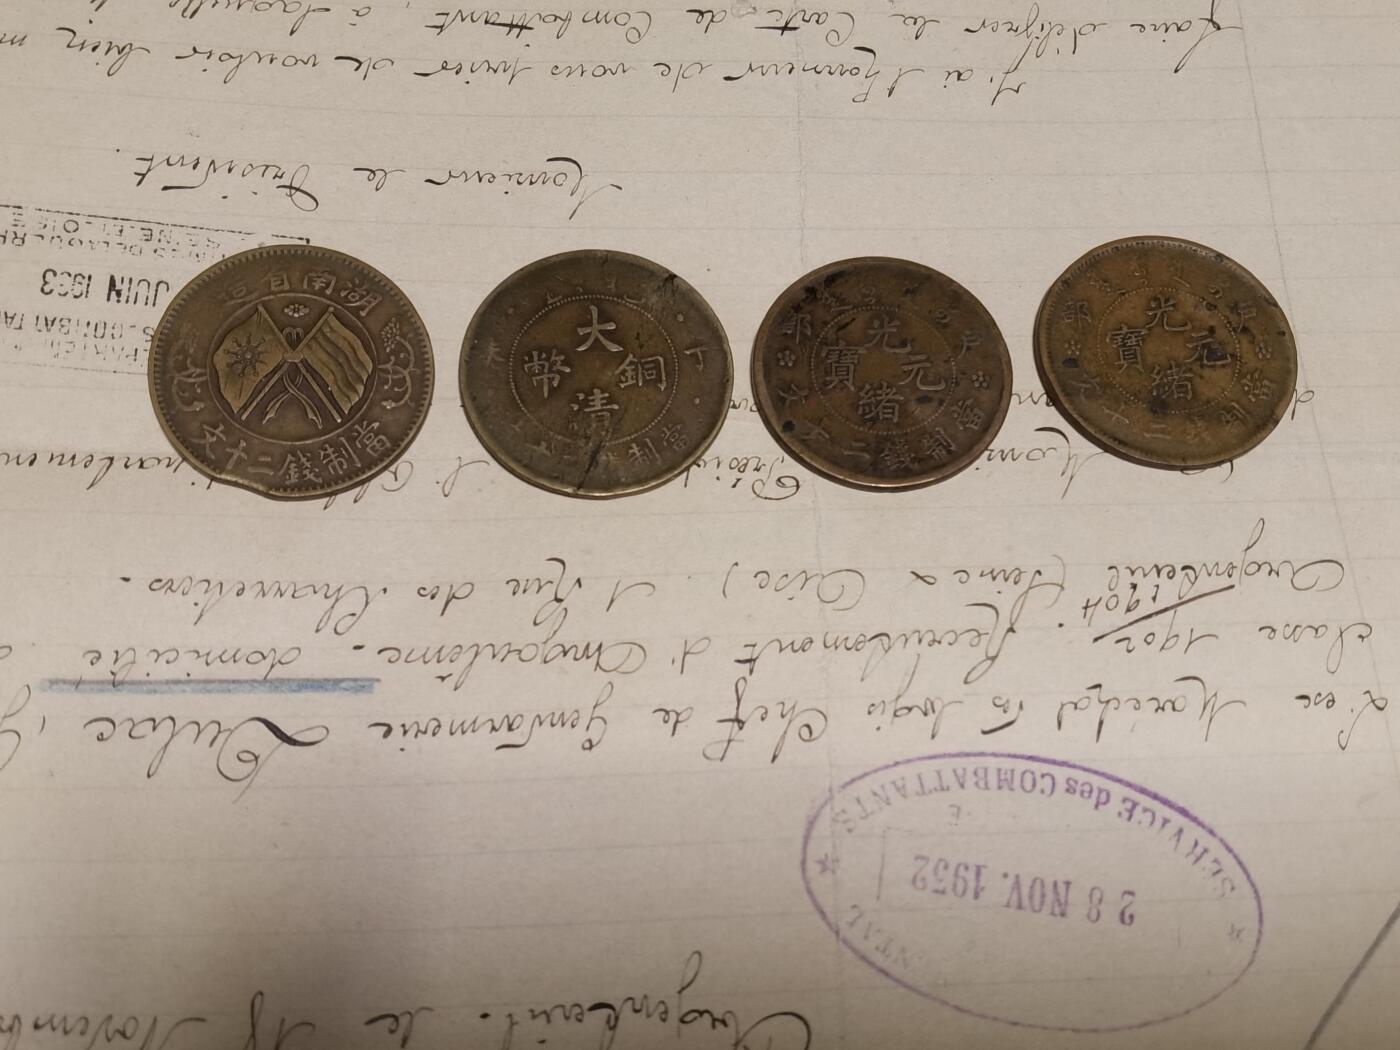 湖南省造
當制錢二十文
大清銅幣
當制錢
光緒元寶
戶部
當制錢二十文
光緒元寶
戶部
當制錢二十文
Argenteuil. le 18 Novemb
SERVICE des COMBATTANTS
28 NOV. 1932
L'ex Maréchal des logis Chef de Gendarmerie
classe 1902 1904 Recrutement d'Angoulême. domicilié
Argenteuil (Seine & Oise). 1 Rue des Charretiers.
Monsieur le Président.
J'ai l'honneur de vous prier de vouloir bien m
faire délivrer la Carte de Combattant, à laquelle
JUIN 1933